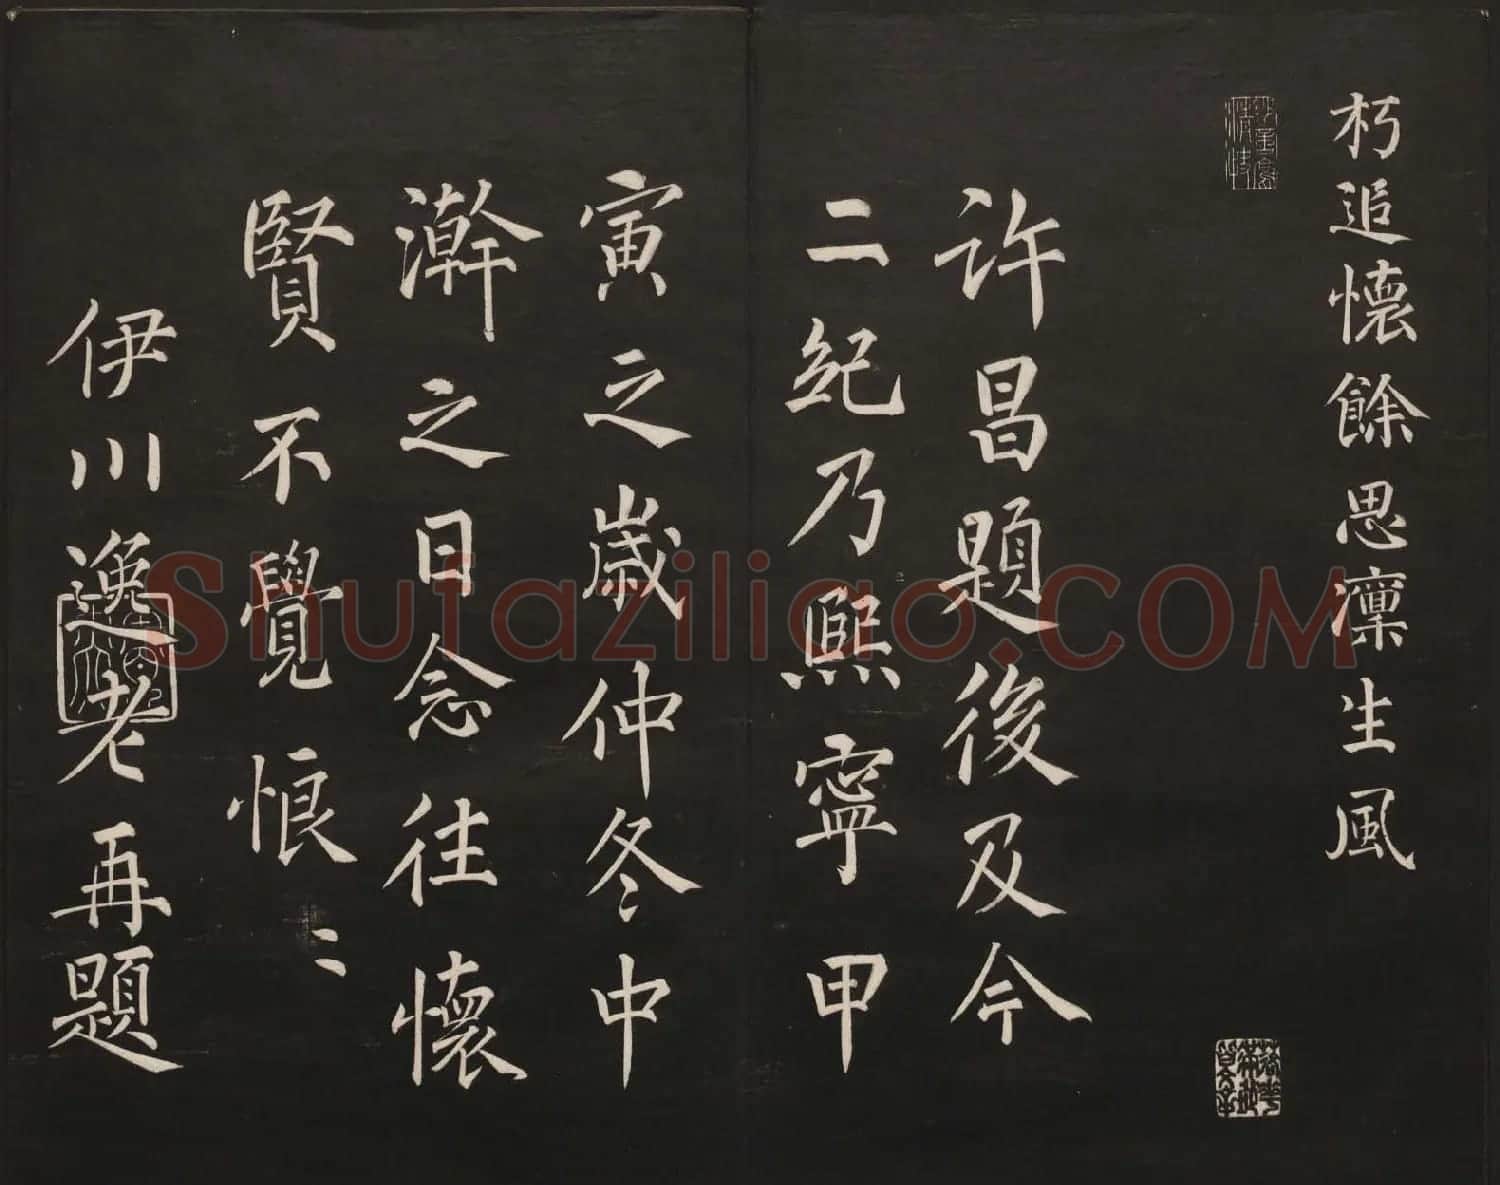 朽追懷餘思凜生風
許昌題後及今
二紀乃熙寧甲
寅之歲仲冬中
澣之日念往懷
賢不覺悵〻
伊川逸老再題
Shufaziliao.COM